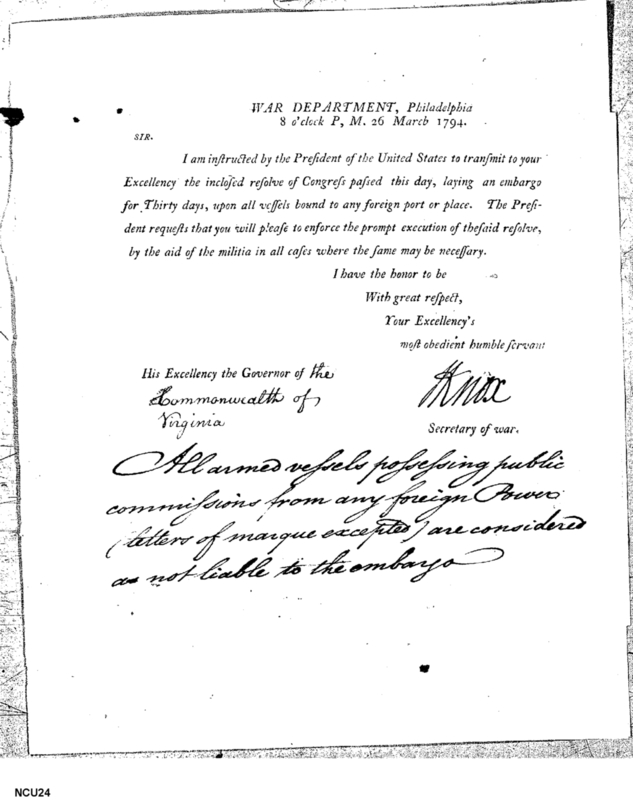 WAR DEPARTMENT, Philadelphia
8 o'clock P, M. 26 March 1794.
SIR.
I am inſtructed by the Preſident of the United States to tranſmit to your
Excellency the incloſed reſolve of Congreſs paſſed this day, laying an embargo
for Thirty days, upon all veſſels bound to any foreign port or place. The Preſi-
dent requeſts that you will pleaſe to enforce the prompt execution of theſaid reſolve,
by the aid of the militia in all caſes where the ſame may be neceſſary.
I have the honor to be
With great reſpect,
Your Excellency's
moſt obedient humble ſervant
His Excellency the Governor of the
Commonwealth of
Virginia
HKnox
Secretary of war.
All armed veſsels poſseſsing public
commiſsions from any foreign Power
(letters of marque excepted) are considered
as not liable to the embargo
NCU24